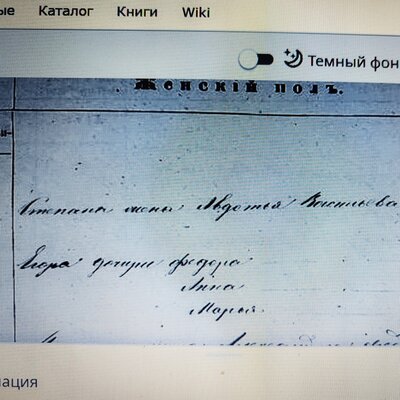 ые Каталог Книги Wiki
Темный фон
Женскій полъ.
Степана жена Авдотья Васильева
Егора дочери Федора
Анна
Марья
мация